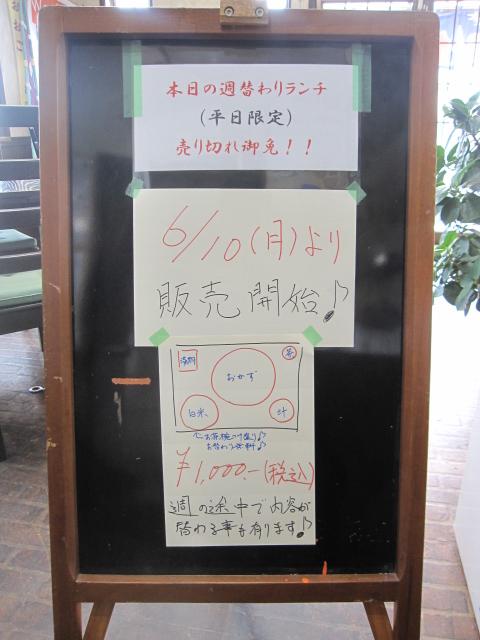 本日の週替わりランチ
(平日限定)
売り切れ御免！！
6/10(月)より
販売開始♪
おかず
白米
汁
お茶碗一杯盛り♪
お替わり無料♪
¥1,000.-(税込)
週の途中で内容が
替わる事も有ります♪